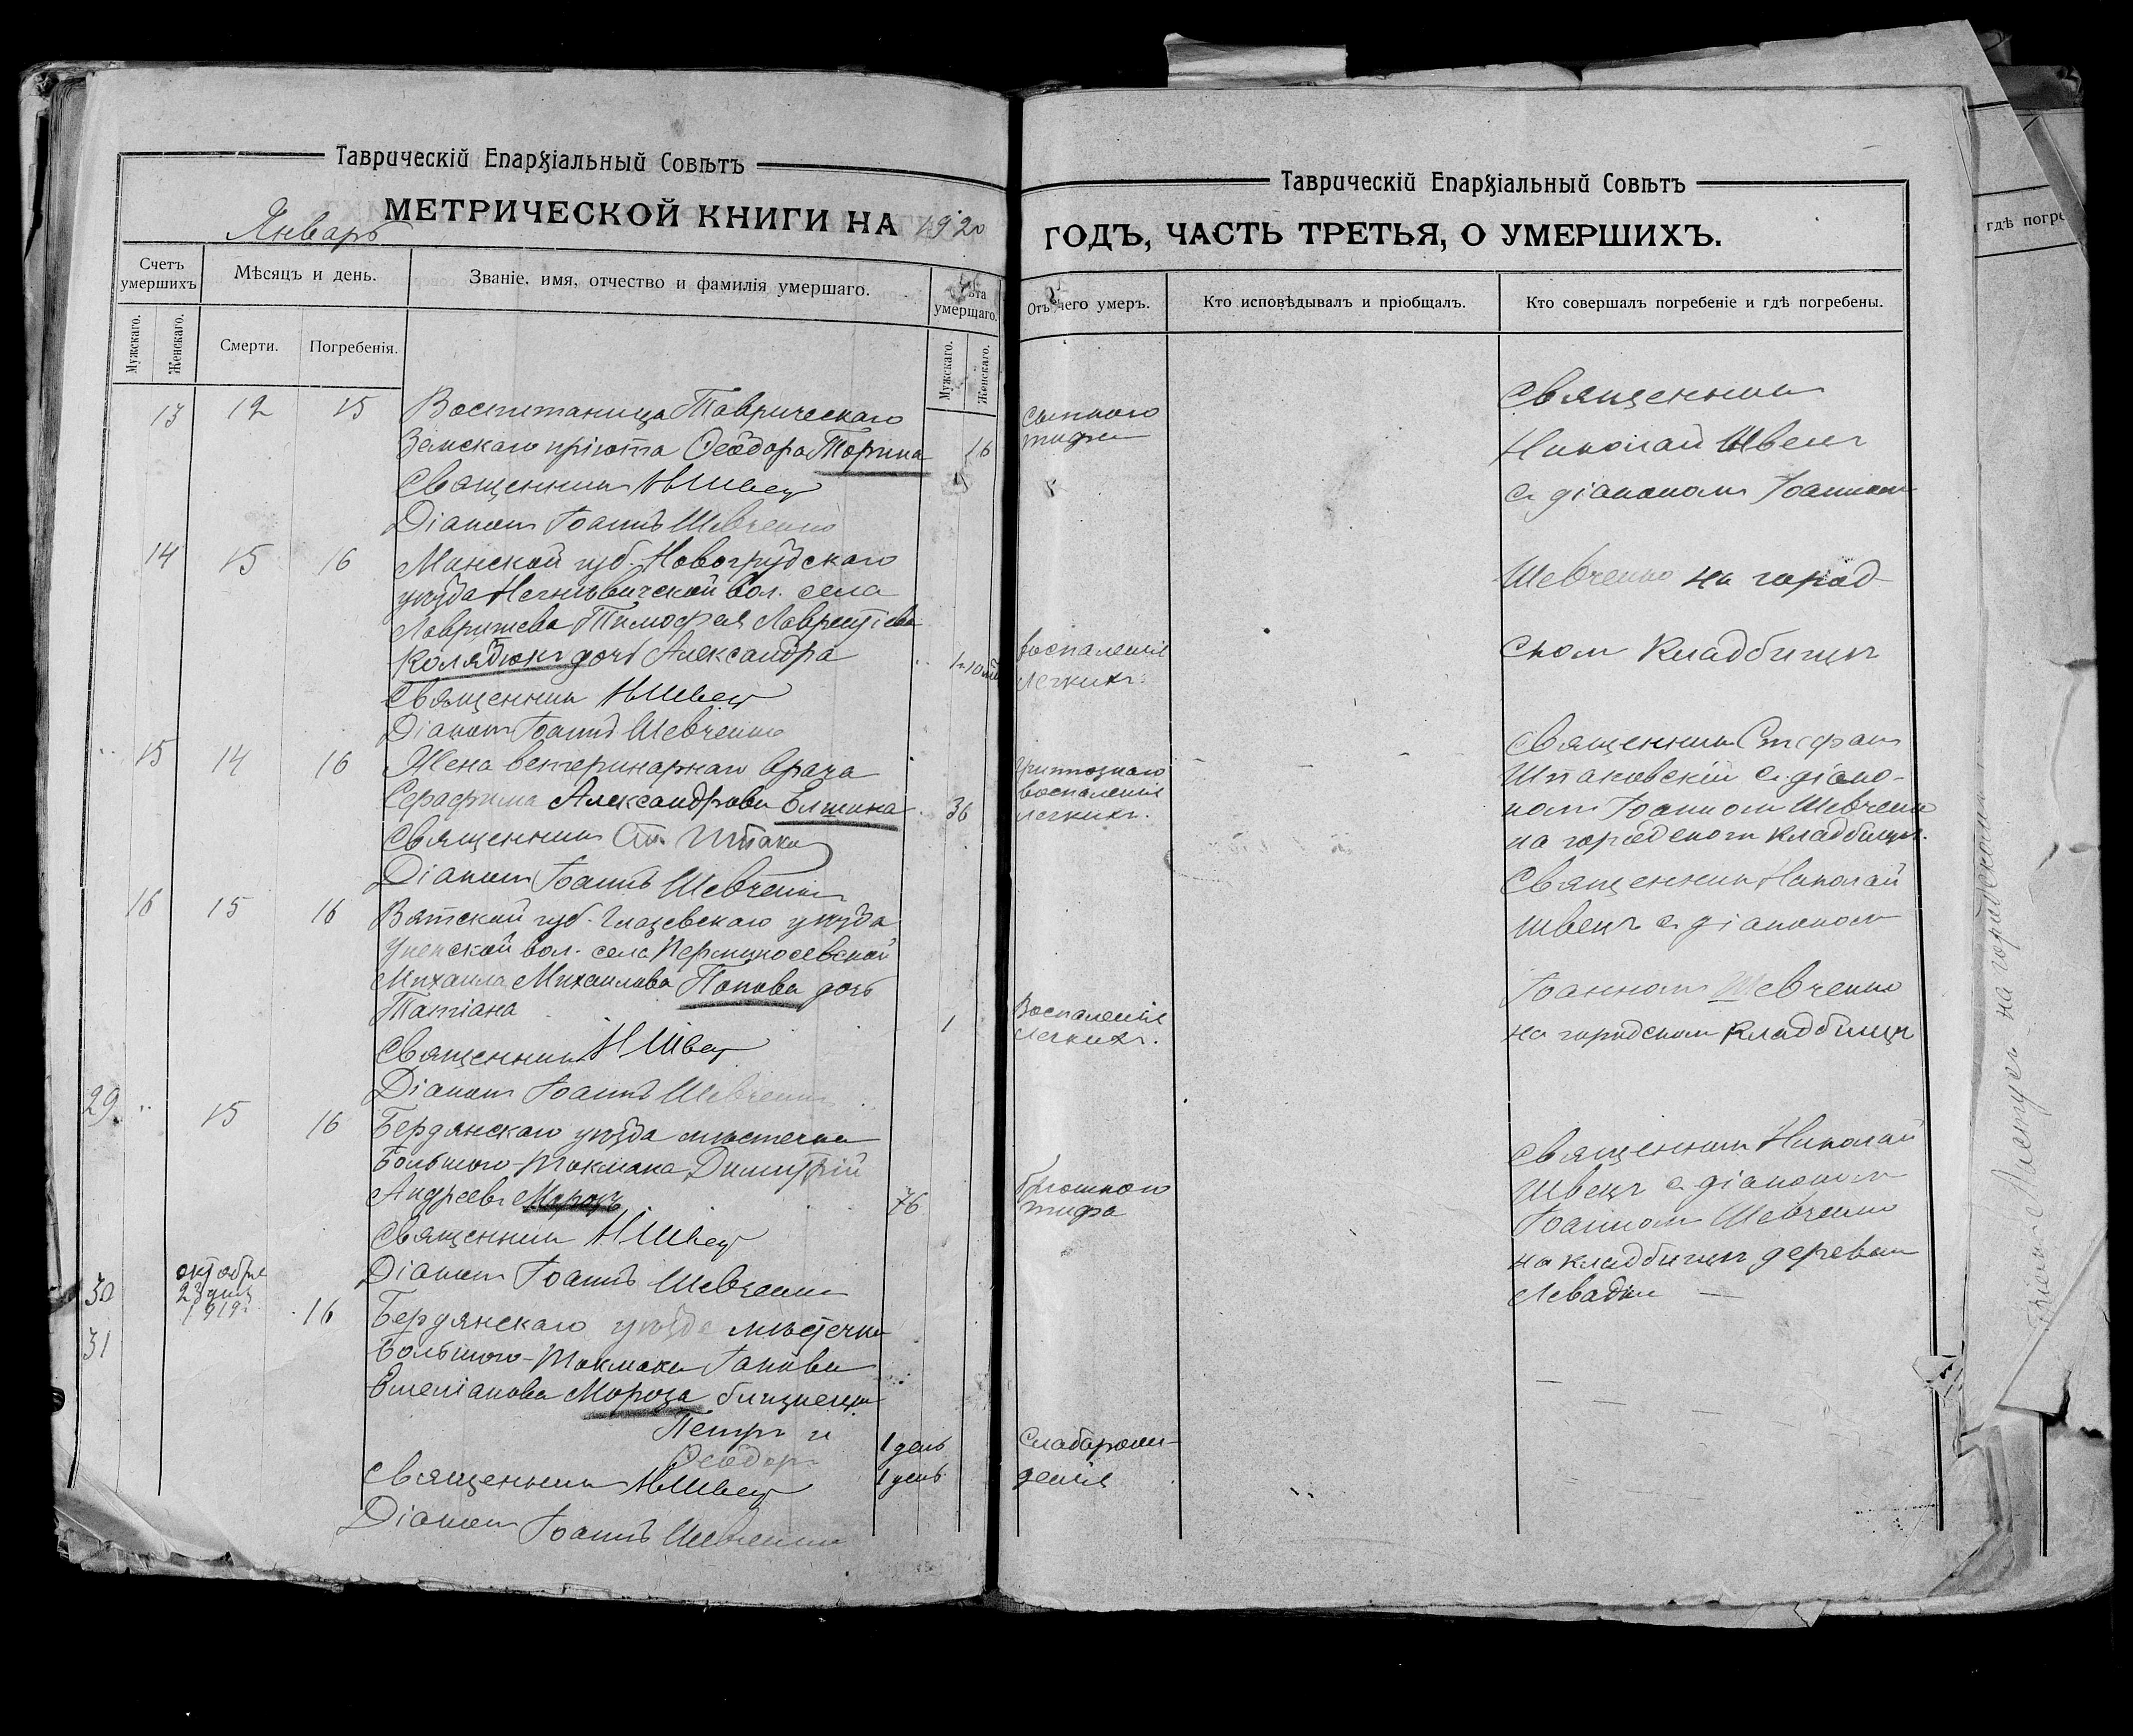 Таврическій Епархіальный Совѣтъ
МЕТРИЧЕСКОЙ КНИГИ НА 1920
Январь
Счетъ умершихъ
Мѣсяцъ и день.
Званіе, имя, отчество и фамилія умершаго.
Лѣта умершаго.
Мужскаго.
Женскаго.
Смерти.
Погребенія.
Мужскаго.
Женскаго.
13 12 15 Воспитаница Таврическаго
Земскаго пріюта Ѳеодора 16
Священникъ Н Швец
Діаконъ Іоаннъ Шевченко
14 15 16 Минской губ. Новогрудскаго
уѣзда вол. села
Тимофея Лаврентіева
Колядюкъ дочь Александра
Священникъ Н Швец
Діаконъ Іоаннъ Шевченко
15 14 16 Жена ветеринарнаго врача
Серафима Александрова Елшина 36
Священникъ Ст. Шпаков
Діаконъ Іоаннъ Шевченко
16 15 16 Вятской губ. Глазовскаго уѣзда
вол. села
Михаила Михаилова Попова дочь
Татіана 1
Священникъ Н Швец
Діаконъ Іоаннъ Шевченко
29 15 16 Бердянскаго уѣзда мѣстечка
Большого-Токмака Димитрій
Андреевъ Морозъ 76
Священникъ Н Швец
Діаконъ Іоаннъ Шевченко
30 октября 23 дня 1919 г. 16 Бердянскаго уѣзда мѣстечка
31 Большого-Токмака Іакова
Емеліанова Мороза близнецы
Петръ и 1 день
Ѳеодоръ 1 день
Священникъ Н Швец
Діаконъ Іоаннъ Шевченко
Таврическій Епархіальный Совѣтъ
ГОДЪ, ЧАСТЬ ТРЕТЬЯ, О УМЕРШИХЪ.
Отъ чего умеръ.
Кто исповѣдывалъ и пріобщалъ.
Кто совершалъ погребеніе и гдѣ погребены.
Сыпного
тифа
Священник
Николай Швецъ
съ діакономъ Іоанномъ
Шевченко на город-
скомъ кладбищѣ
воспаленія
легкихъ.
Гриппознаго
воспаленія
легкихъ.
Священникъ Стефан
Шпаковскій съ діако-
номъ Іоанномъ Шевченко
на городскомъ кладбищѣ.
Воспаленія
легкихъ.
Священникъ Николай
Швецъ съ діакономъ
Іоанномъ Шевченко
на городскомъ кладбищѣ
брюшного
тифа
Священникъ Николай
Швецъ съ діакономъ
Іоанномъ Шевченко
на кладбищѣ деревни
Левадки
Слаборож-
денія
гдѣ погре
на городскомъ